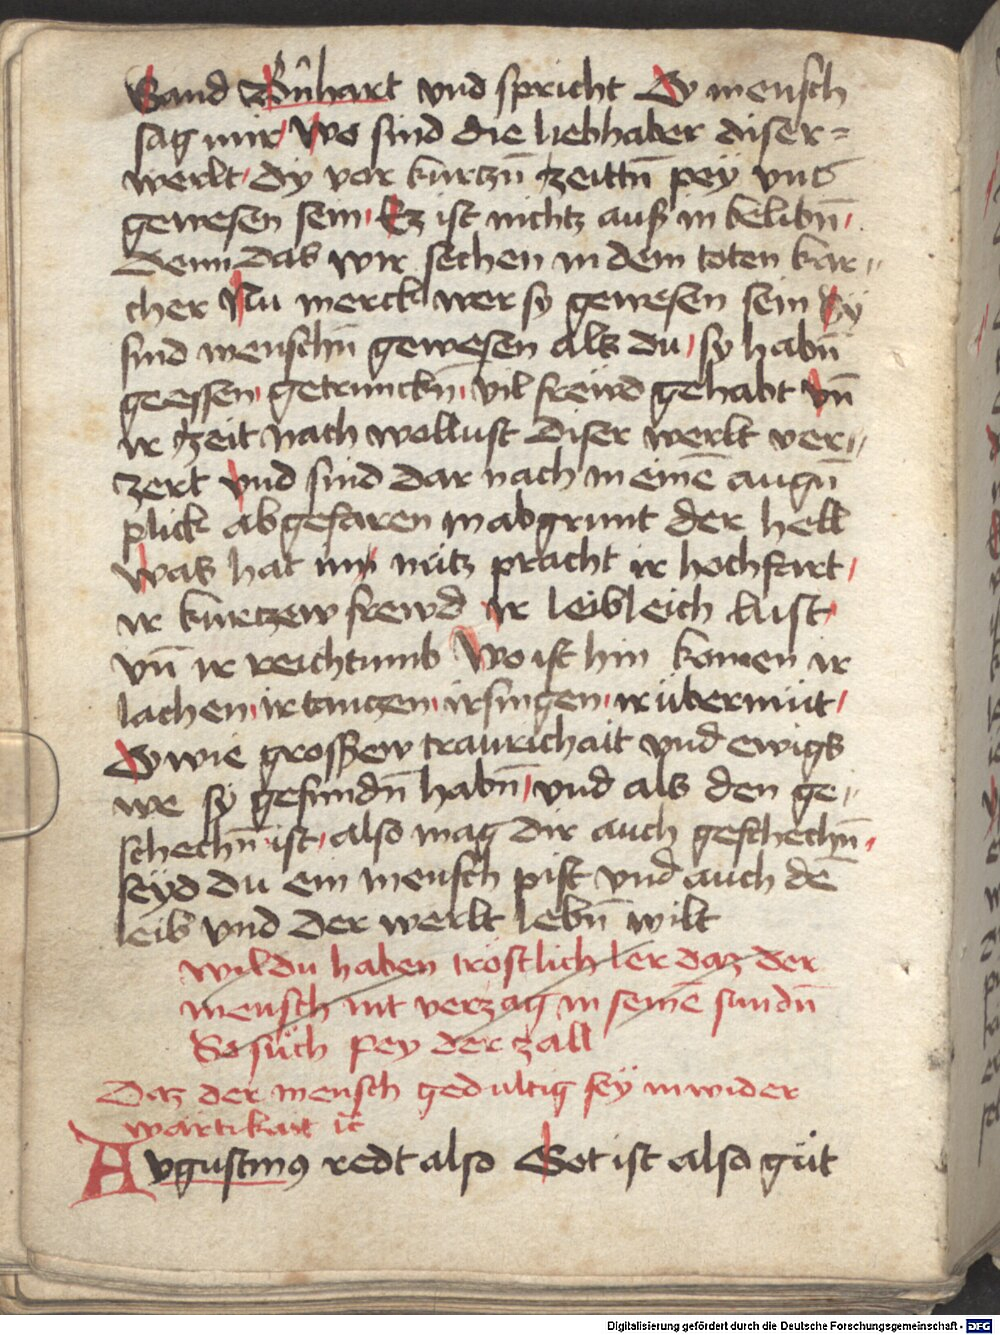 Sand Bernhart vnd spricht O mensch
sag mir wo sind die liebhaber diser=
werlt dy vor kurtzn̄ zeittn̄ pey vns
gewesen sein Ez ist nichtz auß in belibn̄
denn das wir sechen in dem toten kar„
cher Nu merck wer sy gewesen sein Sy
sind menschn̄ gewesen als du sy habn̄
geessen getrunckn̄ vil freund gehabt vn̄
ir zeit nach wollust diser werlt ver„
zert vnd sind dar nach in einē augn̄
plick abgefaren in abgrunt der hell
was hat nutz pracht ir hochfart
ir kurtzew frewd ir leibleich lust
vn̄ ir reichtumb Wo ist hin komen ir
lachen ir tanczen ir singen ir übermüt
O wie grossew traurichait vnd ewigs
we sy gefundn̄ habn̄ vnd als den ge„
schechn̄ ist also mag dir auch geschechn̄
seyd du ein mensch pist vnd auch dē
leib vnd der werlt lebn̄ wilt
wildu haben tröstlich ler daz der
mensch nit verzag in seinē sundn̄
So süch pey der zall
Daz der mensch gedultig sey in wider
wärtikait
Augustinus redt also Got ist also güt
Digitalisierung gefördert durch die Deutsche Forschungsgemeinschaft - DFG